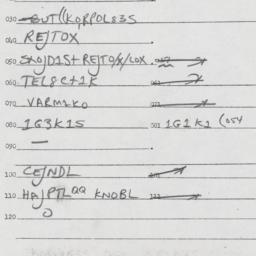 030 BUT((KQRPOL83S
040 REJTOX
050 STOJDIST+REJTO/X/LOX
060 TEL8C+1K
070 VARM1KO
080 1G3K1S 081 1G1K1 (054
090 —
100 CEJNDL
110 HAJPTLQQ KNOBL
120